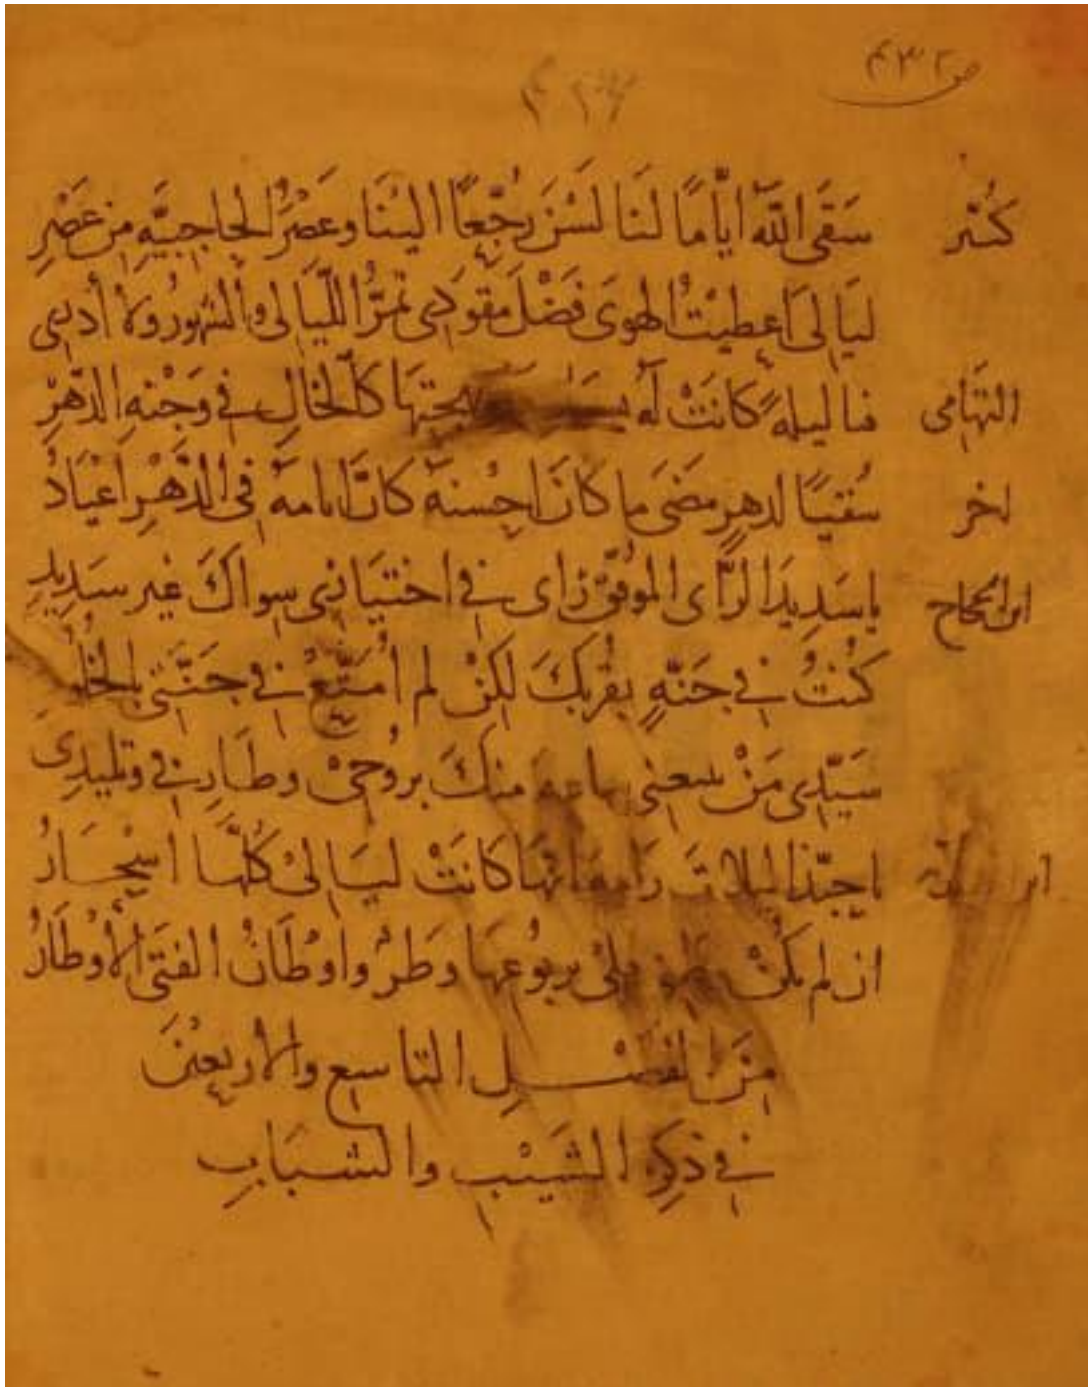 ص ۴۳۲
كثير سَقَى اللّهُ ايّامًا لنَا لَسْنَ رُجّعًا اليْنَا وعَصْرُ الحاجبيَّةِ مِن عَصْرِ
ليَالِىَ اعطيْتُ الهوَى فَضْلَ مِقوَدِى تمرُّ اللّيالى والشهورُ ولا أدرِى
التهَامى ليلةً كانَتْ لَه كالخالِ فى وَجْنةِ الدّهْرِ
اخر سُقيًا لدهرٍ مضَى ما كانَ احْسنهُ كانّ ايامهُ فى الدّهْرِ اعْيَادُ
ابن الحجاج ياسَدِيدَ الرّأى الموُفّق رَاى فى اختيَارِى سِواكَ غير سَدِيدِ
كُنتُ فى جَنّةٍ بقُربكَ لكِنْ لم اُمَتّعْ فى جَنَّتى بالخلُ
سَيّدِى مَنْ ساعة منكَ بروُحِىْ وطارِفى وتليدِى
ياحبّذا ليلاتَ كانَتْ ليَالىْ كُلّهَا اسْحَارُ
ان لم يكُنْ بربُوعهَا وَطَرٌ واوْطَانُ الفتَى الأوْطَارُ
مِنَ الفصْلِ التاسع والاربعينَ
فى ذكرِ الشيْبِ والشبَابِ